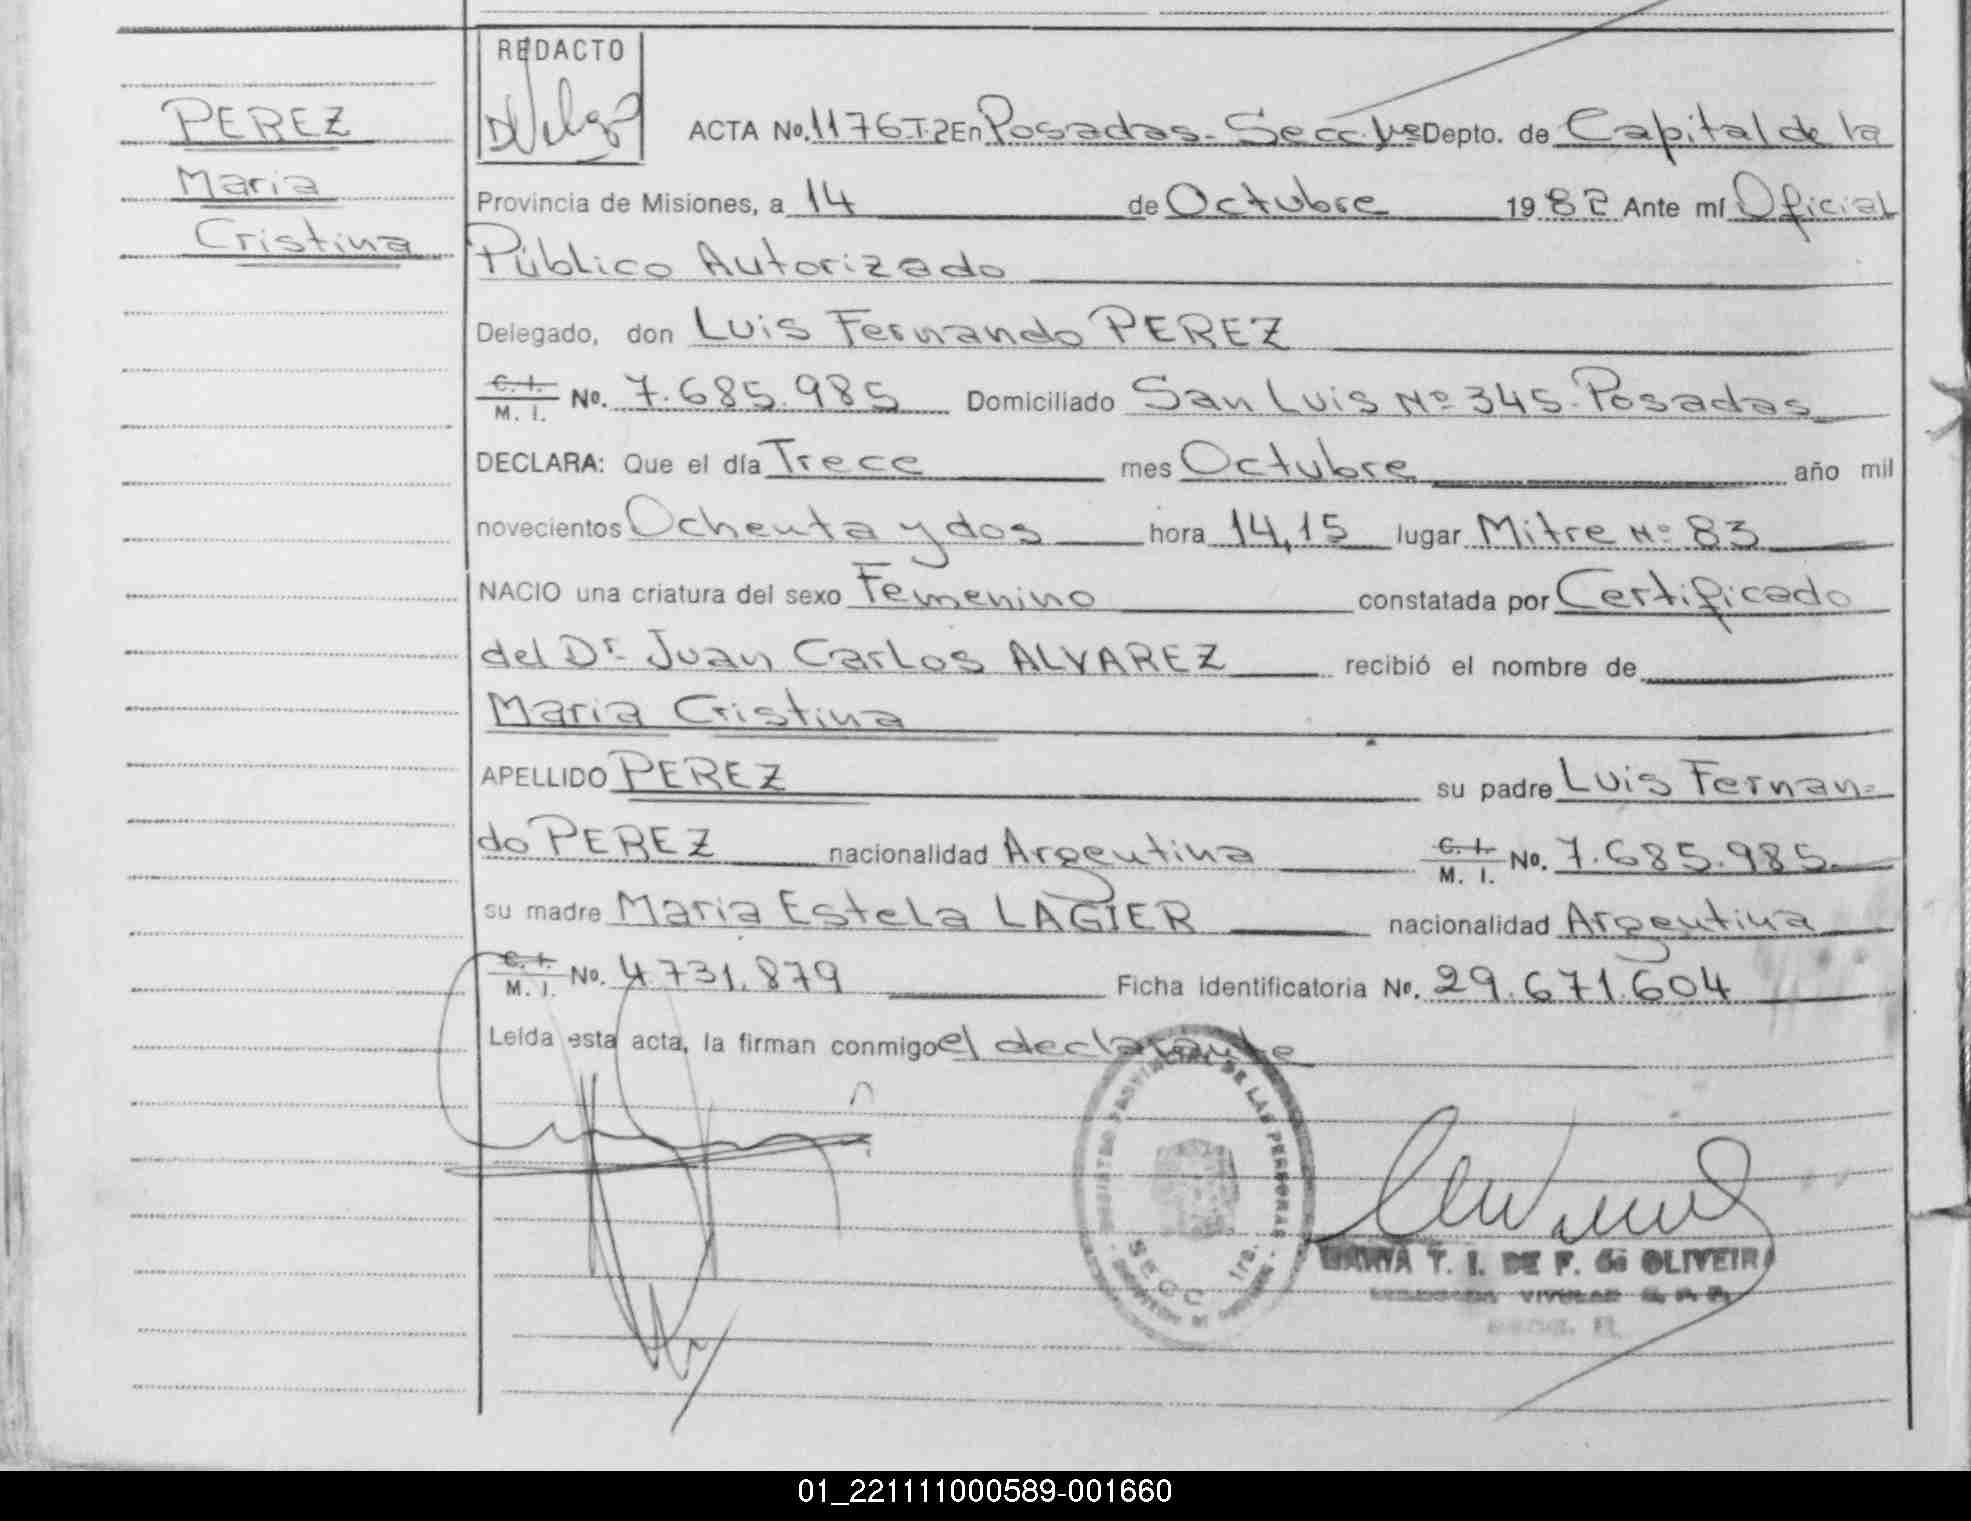 REDACTO
PEREZ
Maria
Cristina
ACTA No. 1176 T2 En Posadas - Secc. 1ra Depto. de Capital de la
Provincia de Misiones, a 14 de Octubre 1982 Ante mí Oficial
Público Autorizado
Delegado, don Luis Fernando PEREZ
C. I. M. I. No. 7.685.985 Domiciliado San Luis Nº 345. Posadas
DECLARA: Que el día Trece mes Octubre año mil
novecientos Ochenta y dos hora 14,15 lugar Mitre Nº 83
NACIO una criatura del sexo Femenino constatada por Certificado
del Dr. Juan Carlos ALVAREZ recibió el nombre de
Maria Cristina
APELLIDO PEREZ su padre Luis Fernan-
do PEREZ nacionalidad Argentina C. I. M. I. No. 7.685.985
su madre Maria Estela LAGIER nacionalidad Argentina
C. I. M. I. No. 4.731.879 Ficha identificatoria No. 29.671.604
Leída esta acta, la firman conmigo el declarante
PROVINCIAL DE LAS PERSONAS
SECC 1ra.
T. I. DE F. de OLIVEIRA
01_221111000589-001660